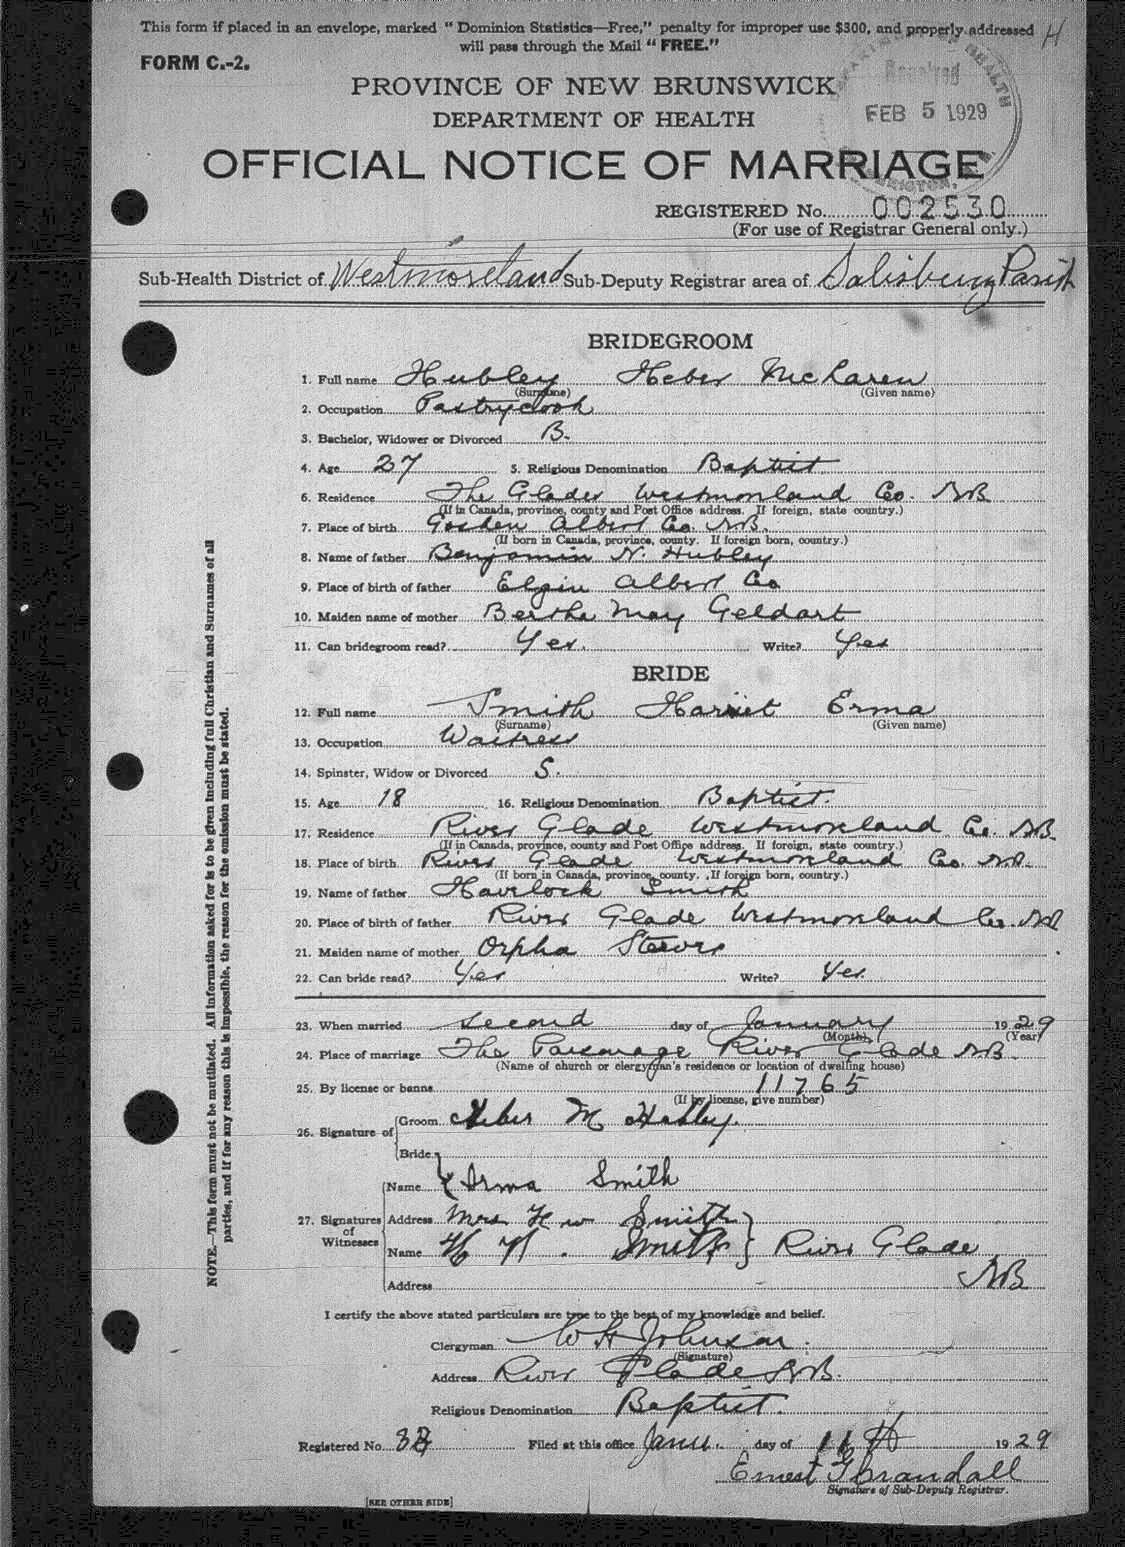 This form if placed in an envelope, marked “Dominion Statistics—Free,” penalty for improper use $300, and properly addressed H
will pass through the Mail “FREE.”
FORM C.-2.
PROVINCE OF NEW BRUNSWICK
DEPARTMENT OF HEALTH
Received
FEB 5 1929
OFFICIAL NOTICE OF MARRIAGE
REGISTERED No. 002530
(For use of Registrar General only.)
Sub-Health District of Westmoreland Sub-Deputy Registrar area of Salisbury Parish
BRIDEGROOM
1. Full name Hubley Heber McLaren
(Surname) (Given name)
2. Occupation Pastrycook
3. Bachelor, Widower or Divorced B.
4. Age 27 5. Religious Denomination Baptist
6. Residence The Glades Westmorland Co. NB
(If in Canada, province, county and Post Office address. If foreign, state country.)
7. Place of birth Goshen Albert Co. NB.
(If born in Canada, province, county. If foreign born, country.)
8. Name of father Benjamin N. Hubley
9. Place of birth of father Elgin Albert Co
10. Maiden name of mother Bertha May Geldart
11. Can bridegroom read? Yes. Write? Yes
BRIDE
12. Full name Smith Harriet Erma
(Surname) (Given name)
13. Occupation Waitress
14. Spinster, Widow or Divorced S.
15. Age 18 16. Religious Denomination Baptist.
17. Residence River Glade Westmorland Co. NB.
(If in Canada, province, county and Post Office address. If foreign, state country.)
18. Place of birth River Glade Westmorland Co. NB.
(If born in Canada, province, county. If foreign born, country.)
19. Name of father Havelock Smith
20. Place of birth of father River Glade Westmorland Co. NB
21. Maiden name of mother Orpha Steeves
22. Can bride read? Yes Write? Yes
23. When married second day of January 1929
(Month) (Year)
24. Place of marriage The Parsonage River Glade NB.
(Name of church or clergyman's residence or location of dwelling house)
25. By license or banns 11765
(If by license, give number)
26. Signature of Groom Heber M Hubley.
Bride
27. Signatures of Witnesses Name Erma Smith
Address Mrs H W Smith
Name H W. Smith River Glade
Address NB
I certify the above stated particulars are true to the best of my knowledge and belief.
Clergyman W H Johnson.
(Signature)
Address River Glade NB.
Religious Denomination Baptist.
Registered No. Filed at this office Janu. day of 11th 1929
Ernest G Crandall
Signature of Sub-Deputy Registrar.
[SEE OTHER SIDE]
NOTE.—This form must not be mutilated. All information asked for is to be given including full Christian and Surnames of all
parties, and if for any reason this is impossible, the reason for the omission must be stated.